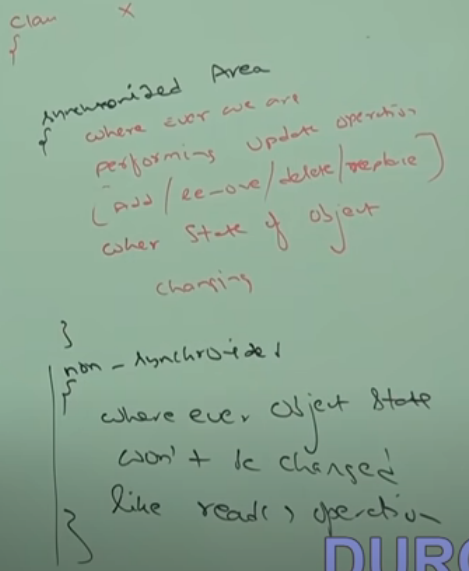 Class X
{
synchronized Area
{
where ever we are
performing update operation
(Add/remove/delete/replace)
wher State of object
changing
}
non-synchronized
{
where ever object state
won't be changed
like read() operation
}
DURG